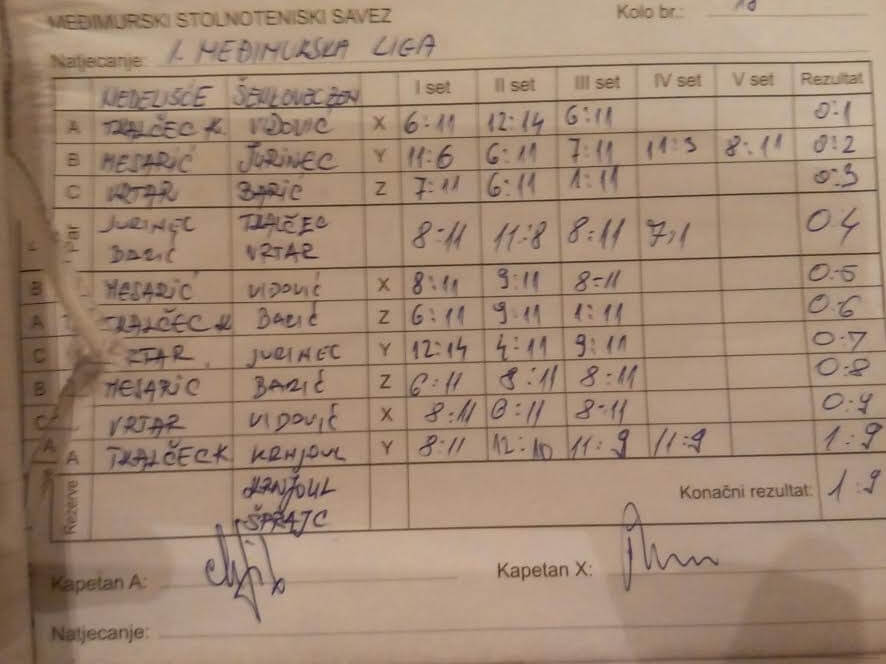 MEĐIMURSKI STOLNOTENISKI SAVEZ
Kolo br.: 18
Natjecanje: 1. MEĐIMURSKA LIGA
NEDELIŠĆE ŠENKOVEC I set II set III set IV set V set Rezultat
A TKALČEC K. VIDOVIĆ X 6:11 12:14 6:11 0:1
B MESARIĆ JURINEC Y 11:6 6:11 7:11 11:3 8:11 0:2
C VRTAR BARIĆ Z 7:11 6:11 1:11 0:3
JURINEC TKALČEC
8-11 11:8 8:11 0:4
BARIĆ VRTAR
B MESARIĆ VIDOVIĆ X 8:11 9:11 8-11 0:5
A TKALČEC K BARIĆ Z 6:11 9:11 1:11 0:6
C VRTAR JURINEC Y 12:14 4:11 9:11 0:7
B MESARIĆ BARIĆ Z 6:11 8:11 8:11 0:8
C VRTAR VIDOVIĆ X 8:11 8:11 8-11 0:9
A A TKALČEC K KRNJOUL Y 8:11 12:10 11:9 11:9 1:9
Rezerve KRNJOUL
Konačni rezultat: 1:9
ŠPRAJC
Kapetan A: Kapetan X:
Natjecanje: